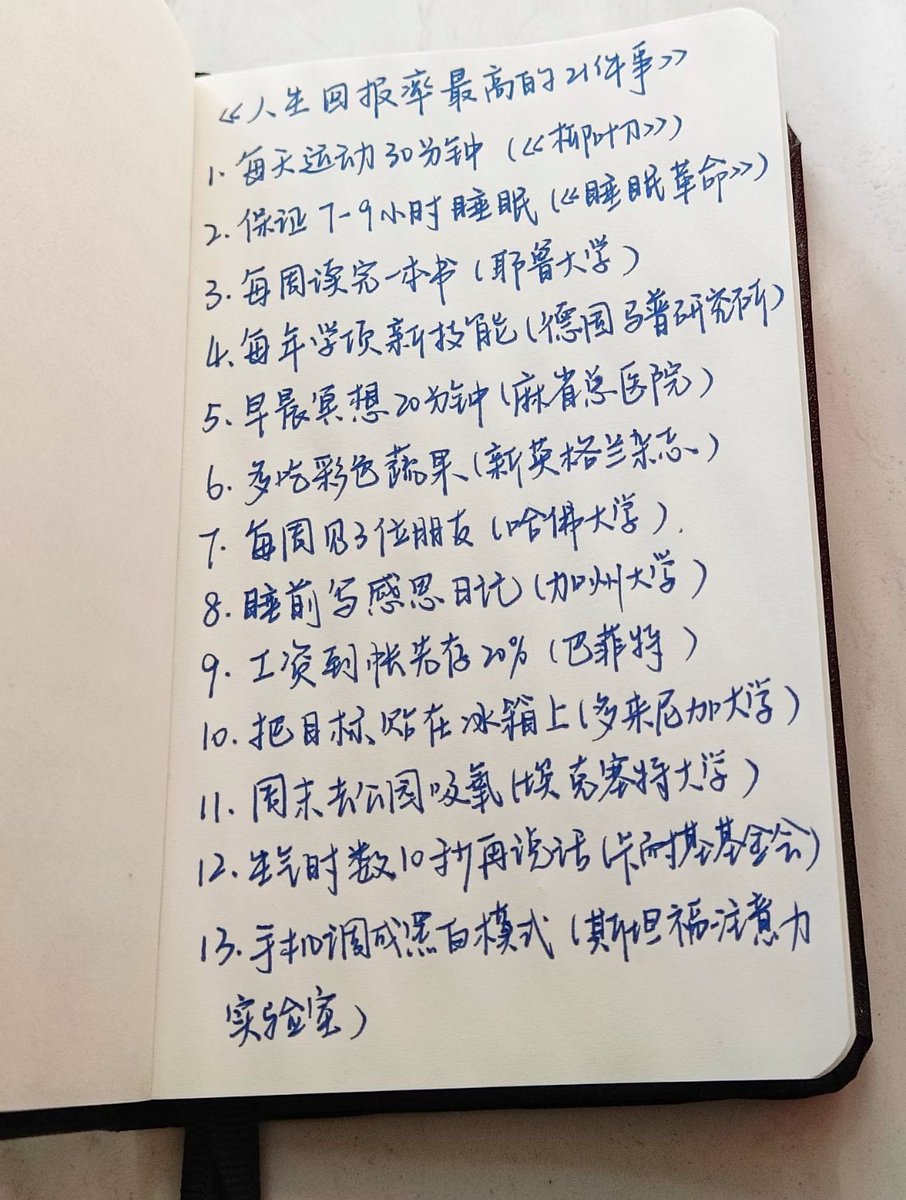 《人生回报率最高的21件事》
1. 每天运动30分钟（《柳叶刀》）
2. 保证7-9小时睡眠（《睡眠革命》）
3. 每周读完一本书（耶鲁大学）
4. 每年学项新技能（德国马普研究所）
5. 早晨冥想20分钟（麻省总医院）
6. 多吃彩色蔬果（新英格兰杂志）
7. 每周见3位朋友（哈佛大学）
8. 睡前写感恩日记（加州大学）
9. 工资到帐先存20%（巴菲特）
10. 把目标贴在冰箱上（多米尼加大学）
11. 周末去公园吸氧（埃克塞特大学）
12. 生气时数10秒再说话（卡耐基基金会）
13. 手机调成黑白模式（斯坦福注意力
实验室）